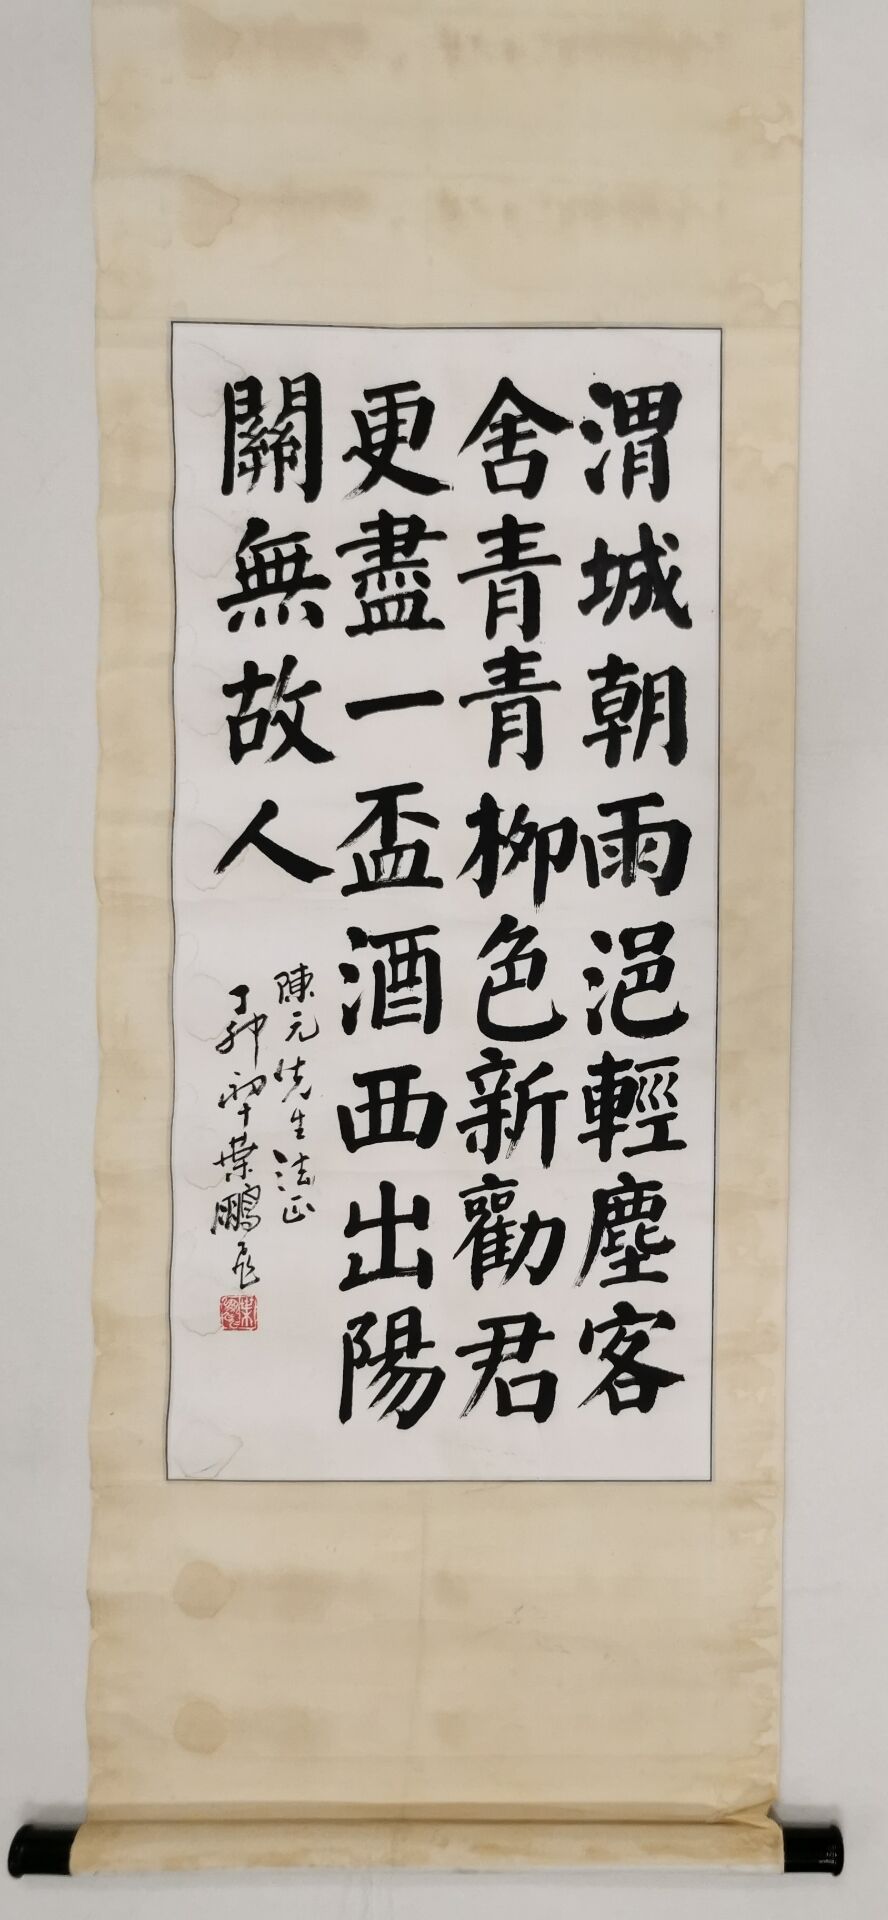 渭城朝雨浥輕塵客
舍青青柳色新勸君
更盡一盃酒西出陽
關無故人
陳元先生法正
丁卯 葉鵬飛